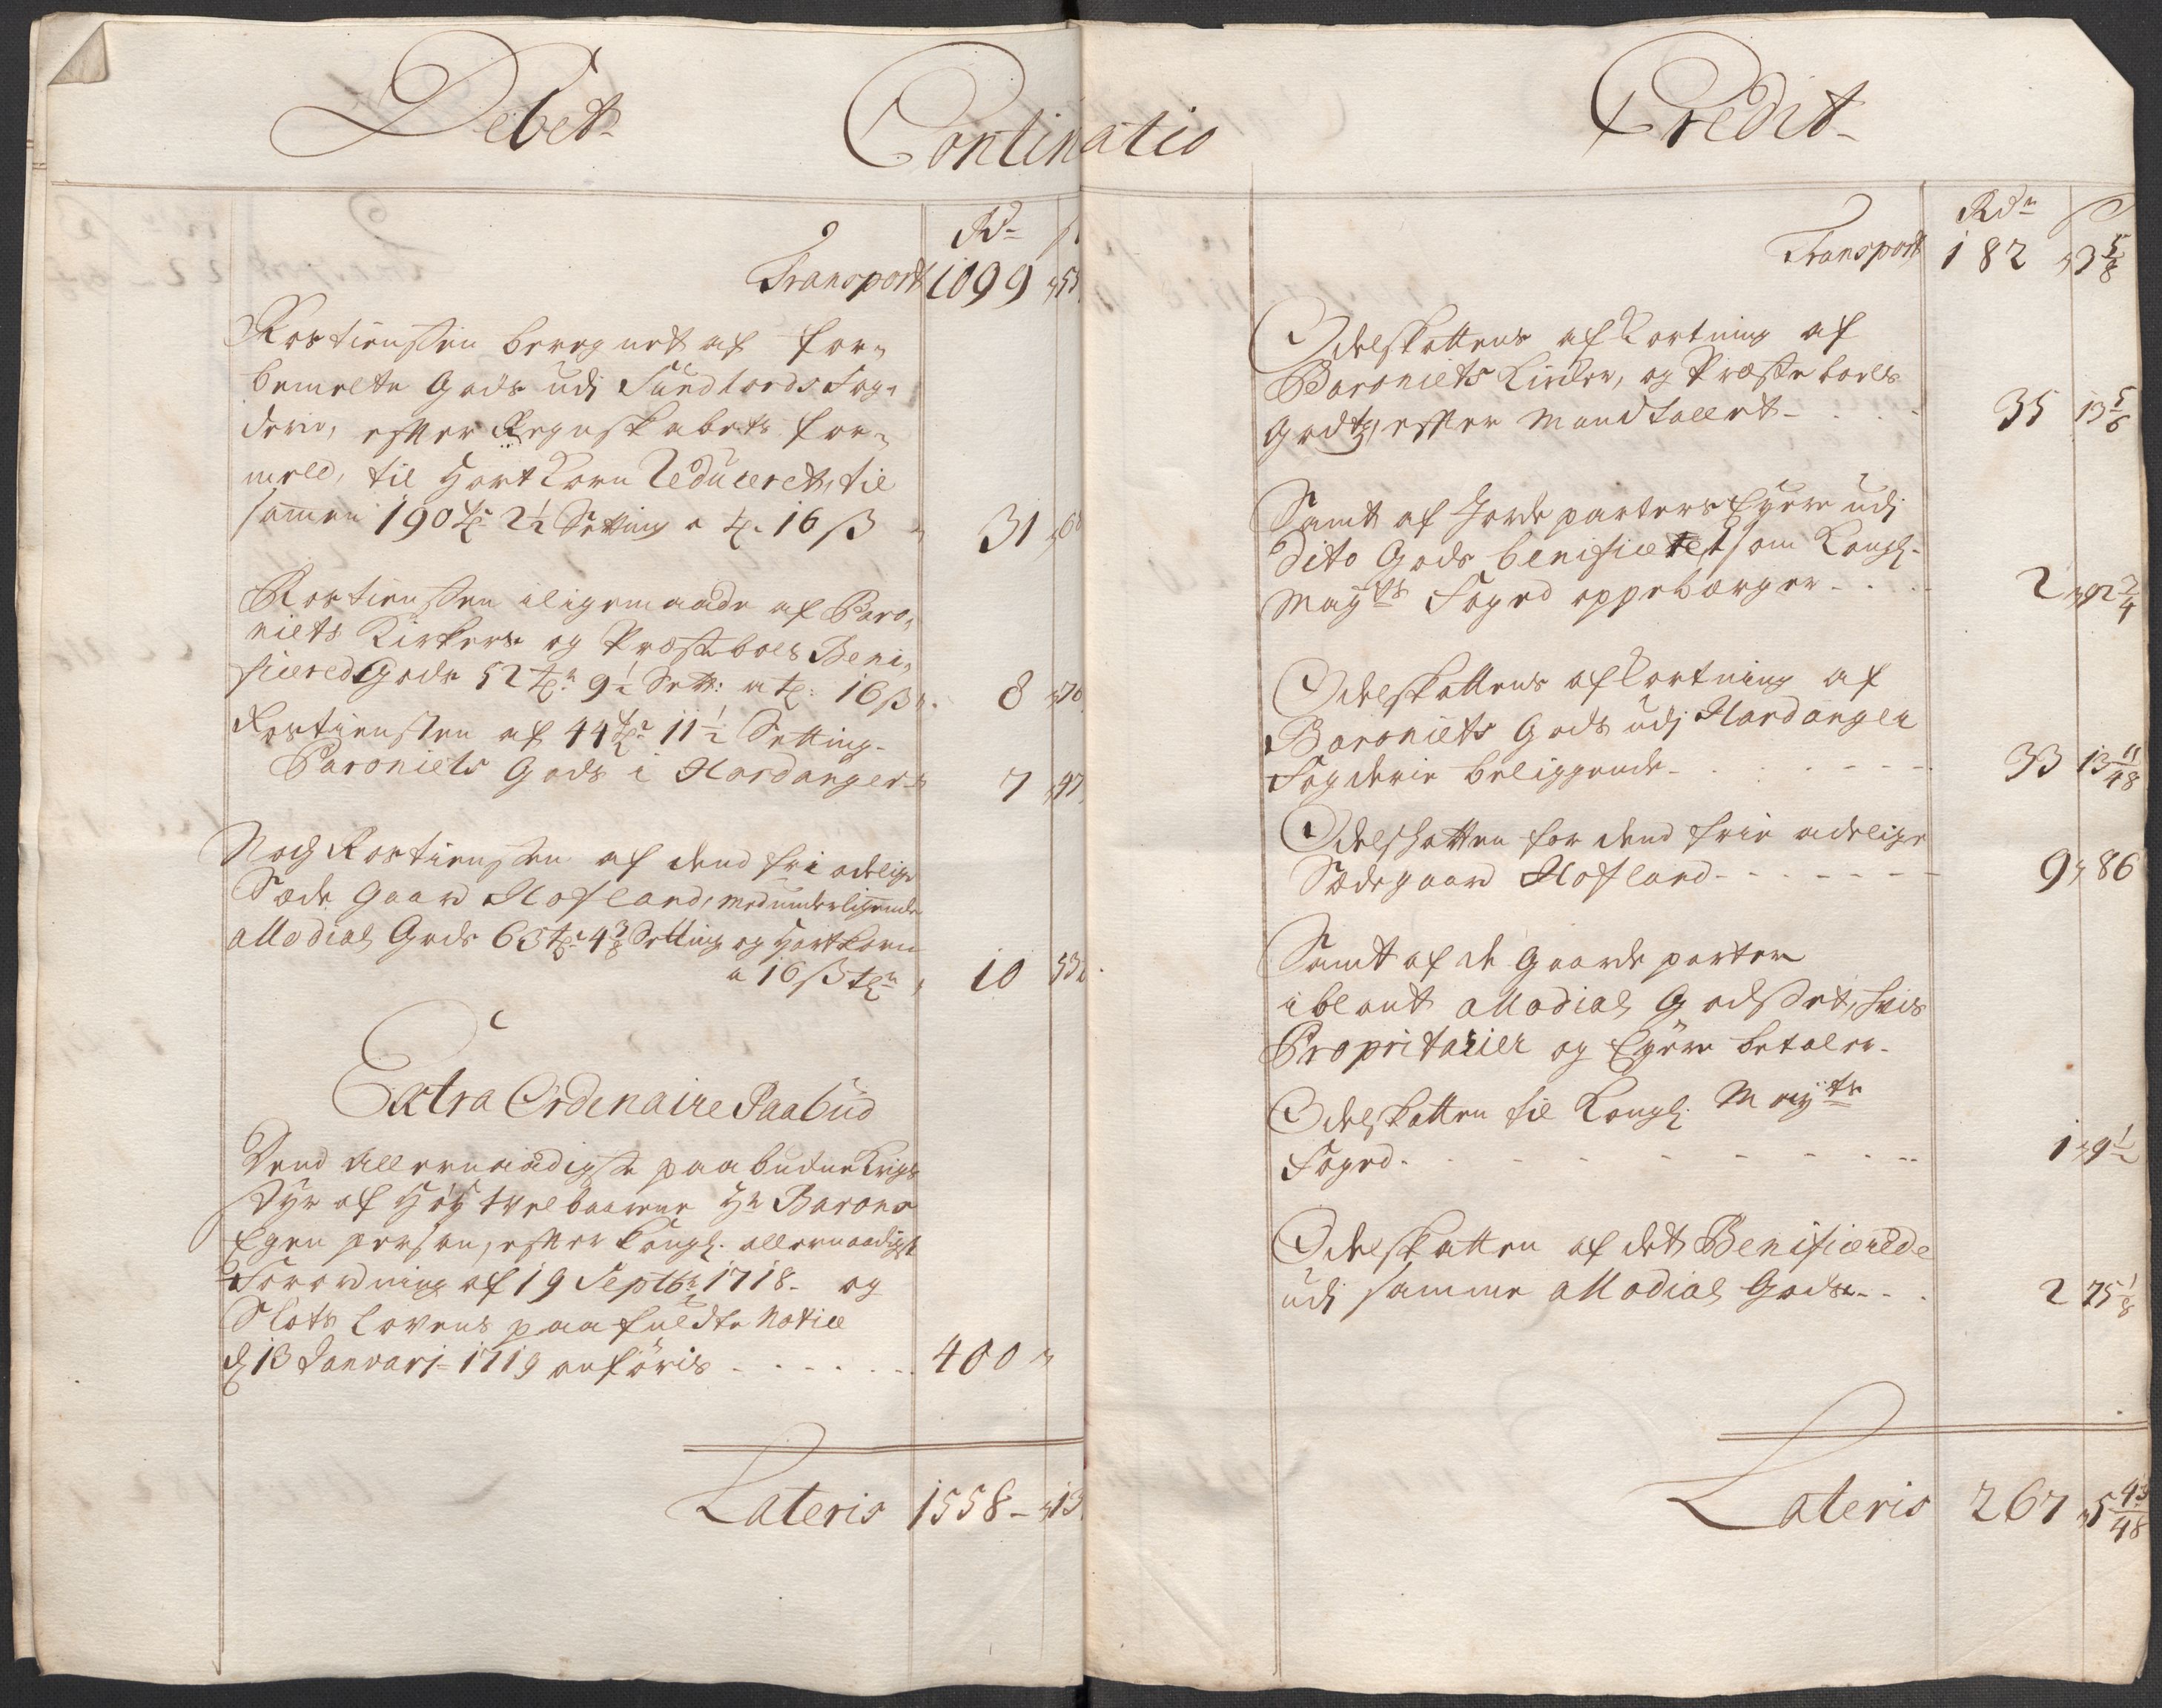 Debet
Continuatio
Rd
Transport 1099 „ 55
Rostiensten beregnet af for-
bemelte Gods udj Sundhords Fog-
derie, efter Regnskabets for-
meld, til Hart Korn Reduceret, til
sammen 190 Tr 2½ Setting a T. 16 ß „ 31
Rostiensten iligemaade af Baro-
niets Kirkers og Præsteboels Beni-
ficered Gods 52 Tr 9½ Sett: a T: 16 ß „ 8 „ 78
Rostiensten af 44 Tr 11½ Setting
Baroniets Gods i Hardanger „ 7 „ 47
Noch Rostiensten af dend fri adelige
Sæde Gaard Hofland, med underliggende
allodial Gods 63 Tr 4⅜ Setting og Hartkorn
a 16 ß Tr „ 10 53
Extra Ordinaire Paabud
Dend allernaadigste paabudne Krigs
Styr af Høy Welbaarne Hr Barons
Egen person, efter Kongl. allernaadigst
Forordning af 19 Septbr 1718 - og
Slots Lovens paafuldte Notice
d 13 Januarj 1719 anføris - - - 400 „
Lateris 1558 - „ 13
Credit
Rdr ß
Transport 182 „ 3⅝
Odelskattens afkortning af
Baroniets Kirker, og Præste boels
Godtz, efter Mandtallet - - - 35 13⅚
Samt af Jorde parters Eyere udj
dito Gods benificeret som Kongl.
Mayts Foged oppebærger - - - 2 „ 92¾
Odelskattens afkortning af
Baroniets Gods udj Hardanger
Fogderie beliggende - - - 33 13 11/48
Odelskatten for dend frie adelige
Sædegaard Hofland - - - 9 „ 86
Samt af de Gaarde parter
iblant allodial Godset, hvis
Propritarier og Eyere betaler
Odelskatten til Kongl. Mayts
Foged - - - 1 „ 9½
Odelskatten af det Benificerede
udj samme allodial Gods - - - 2 75⅛
Lateris 267 „ 5 43/48